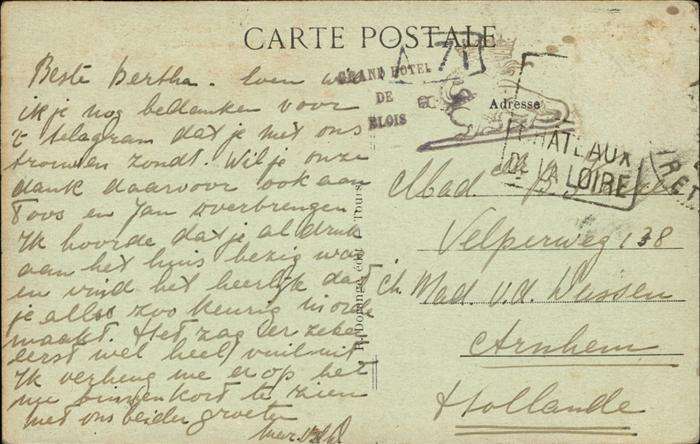 CARTE POSTALE
GRAND HOTEL
DE
BLOIS
Adresse
CHATEAUX
DE LA LOIRE
Beste Bertha. Even
ik je nog bedanken voor
't telegram dat je met ons
trouwen zondt. Wil je onze
dank daarvoor ook aan
Toos en Jan overbrengen.
Ik hoorde dat je al druk
aan het huis bezig was
en vind het heerlijk dat
je alles zoo keurig in orde
maakt. Het zag er zeker
eerst wel heel vuil uit
Ik verheug me er op het
binnenkort te zien
Met ons beider groeten
Mad
Velperweg 138
ch. Mad. v.d. Dussen
Arnhem
Hollande
Tours